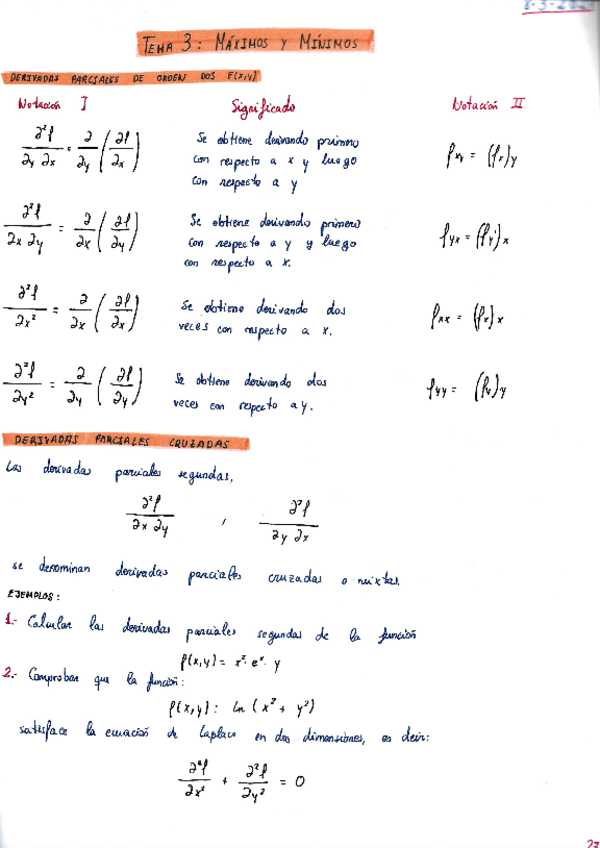 TEMA 3: MÁXIMOS Y MÍNIMOS
DERIVADAS PARCIALES DE ORDEN DOS F(x,y)
Notación I Significado Notación II
∂²f/∂y ∂x = ∂/∂y (∂f/∂x) Se obtiene derivando primero con respecto a x y luego con respecto a y fxy = (fx)y
∂²f/∂x ∂y = ∂/∂x (∂f/∂y) Se obtiene derivando primero con respecto a y y luego con respecto a x. fyx = (fy)x
∂²f/∂x² = ∂/∂x (∂f/∂x) Se obtiene derivando dos veces con respecto a x. fxx = (fx)x
∂²f/∂y² = ∂/∂y (∂f/∂y) Se obtiene derivando dos veces con respecto a y. fyy = (fy)y
DERIVADAS PARCIALES CRUZADAS
Las derivadas parciales segundas,
∂²f/∂x ∂y , ∂²f/∂y ∂x
se denominan derivadas parciales cruzadas o mixtas.
EJEMPLOS:
1.- Calcular las derivadas parciales segundas de la función
f(x,y) = x² · eˣ · y
2.- Comprobar que la función:
f(x,y): ln (x² + y²)
satisface la ecuación de Laplace en dos dimensiones, es decir:
∂²f/∂x² + ∂²f/∂y² = 0
23